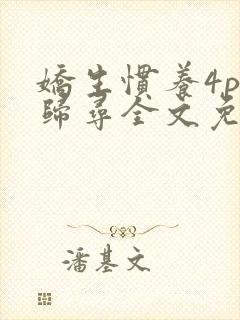 嬌生慣養4p
歸尋全文免
潘基文